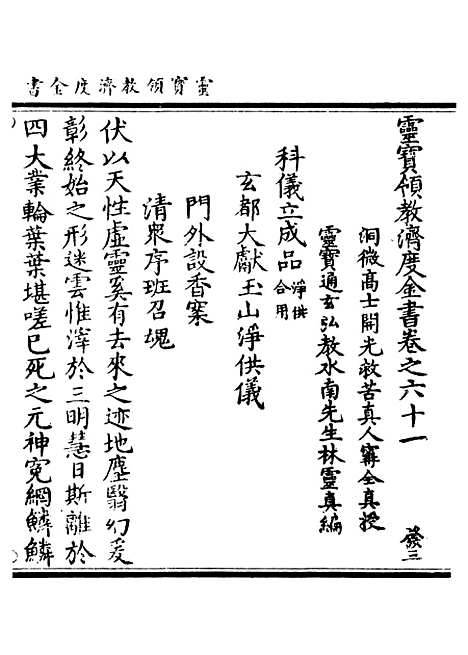 靈寶領教濟度金書
靈寶領教濟度金書卷之六十一 發三
洞微高士開光救苦真人寗全真授
靈寶通玄弘教水南先生林靈真編
科儀立成品 淨供合用
玄都大獻玉山淨供儀
門外設香案
清衆序班召魂
伏以天性虛靈奚有去來之迹地塵翳幻爰
彰終始之形迷雲惟滓於三明慧日斯離於
四大業輪葉葉堪嗟已死之元神寃網鱗鱗